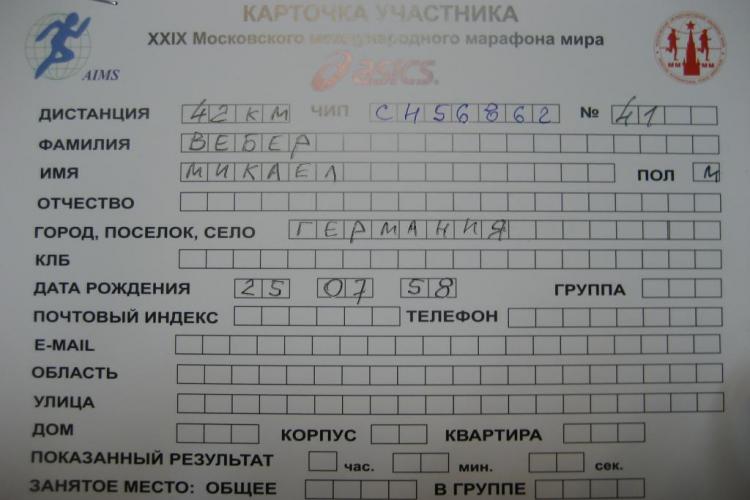 КАРТОЧКА УЧАСТНИКА
XXIX Московского международного марафона мира
AIMS
asics
ДИСТАНЦИЯ 42КМ ЧИП СН56862 № 41
ФАМИЛИЯ ВЕБЕР
ИМЯ МИКАЕЛ ПОЛ М
ОТЧЕСТВО
ГОРОД, ПОСЕЛОК, СЕЛО ГЕРМАНИЯ
КЛБ
ДАТА РОЖДЕНИЯ 25 07 58 ГРУППА
ПОЧТОВЫЙ ИНДЕКС ТЕЛЕФОН
E-MAIL
ОБЛАСТЬ
УЛИЦА
ДОМ КОРПУС КВАРТИРА
ПОКАЗАННЫЙ РЕЗУЛЬТАТ час. мин. сек.
ЗАНЯТОЕ МЕСТО: ОБЩЕЕ В ГРУППЕ